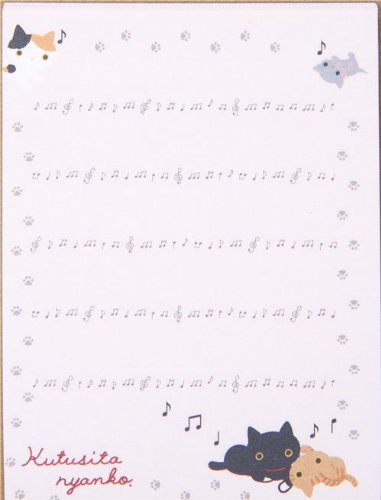 Kutusita
nyanko.